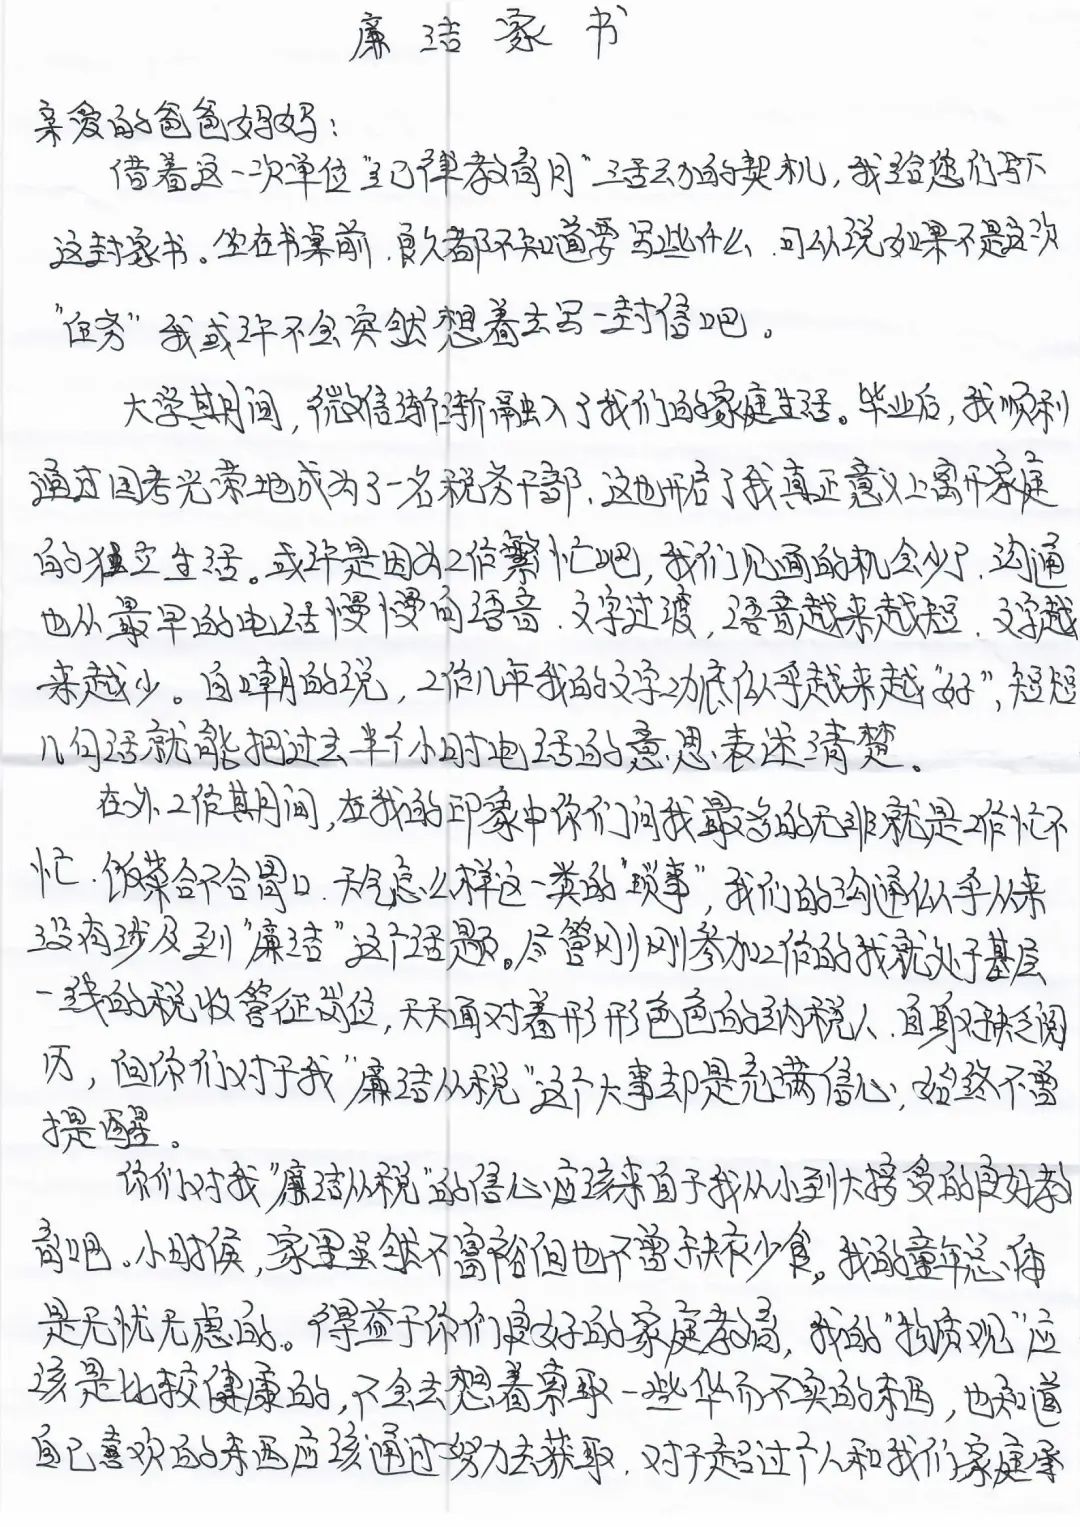 廉洁家书
亲爱的爸爸妈妈：
借着这一次单位“主已律教育月”活动的契机，我给您们写下
这封家书。坐在书桌前，良久都不知道要写些什么，可以说如果不是这次
“任务”我或许不会突然想着去写一封信吧。
大学期间，微信渐渐融入了我们的家庭生活。毕业后，我顺利
通过国考光荣地成为了一名税务干部，这也开启了我真正意义上离开家庭
的独立生活。或许是因为工作繁忙吧，我们见面的机会少了，沟通
也从最早的电话慢慢向语音、文字过渡，语音越来越短，文字越
来越少。自嘲的说，工作几年我的文字功底似乎越来越“好”，短短
几句话就能把过去半个小时电话的意思表述清楚。
在外工作期间，在我的印象中你们问我最多的无非就是工作忙不
忙、饭菜合不合胃口、天气怎么样这一类的“琐事”，我们的沟通似乎从来
没有涉及到“廉洁”这个话题。尽管刚刚参加工作的我就处于基层
一线的税收管征岗位，天天面对着形形色色的纳税人，自身又缺乏阅
历，但你们对于我“廉洁从税”这个大事却是充满信心，始终不曾
提醒。
你们对我“廉洁从税”的信心应该来自于我从小到大接受的良好教
育吧。小时候，家里虽然不富裕但也不曾缺衣少食。我的童年总体
是无忧无虑的。得益于你们良好的家庭教育，我的“物质观”应
该是比较健康的，不会去想着索取一些华而不实的东西，也知道
自已喜欢的东西应该通过努力去获取，对于超过个人和我们家庭承